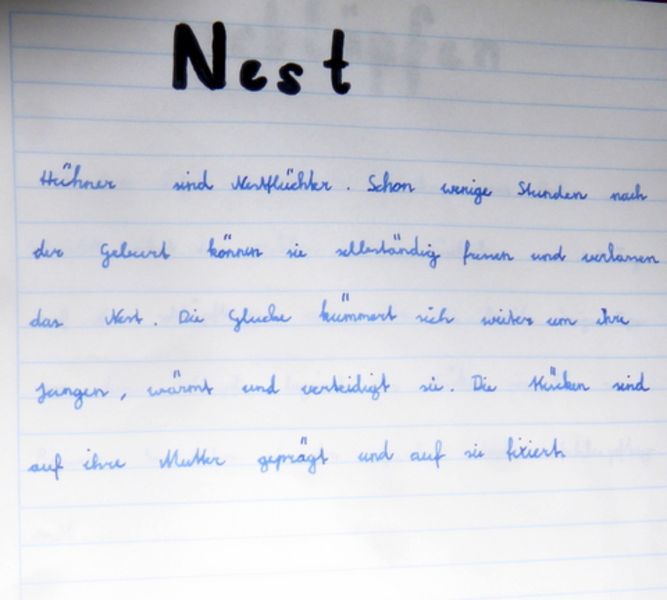 Nest
Hühner sind Nestflüchter. Schon wenige Stunden nach
der Geburt können sie selbständig fressen und verlassen
das Nest. Die Glucke kümmert sich weiter um ihre
Jungen, wärmt und verteidigt sie. Die Kücken sind
auf ihre Mutter geprägt und auf sie fixiert